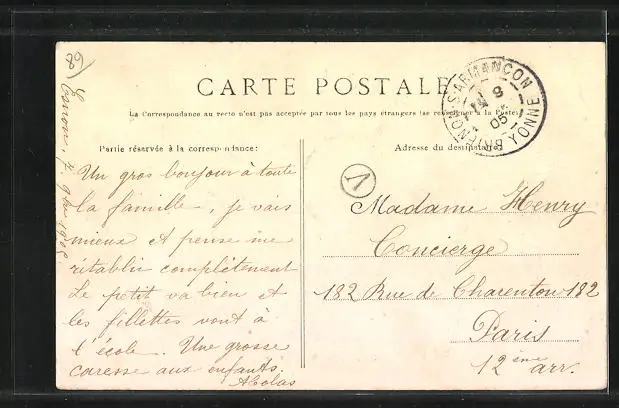 89
CARTE POSTALE
La Correspondance au recto n'est pas acceptée par tous les pays étrangers (se renseigner à la Poste)
Partie réservée à la correspondance:
Adresse du destinataire
BRIENON-S-ARMANÇON
YONNE
8
05
V
Un gros bonjour à toute
la famille, je vais
mieux et pense me
rétablir complètement
Le petit va bien et
les fillettes vont à
l'école. Une grosse
caresse aux enfants.
Madame Henry
Concierge
182 Rue de Charenton 182
Paris
12ème arr.